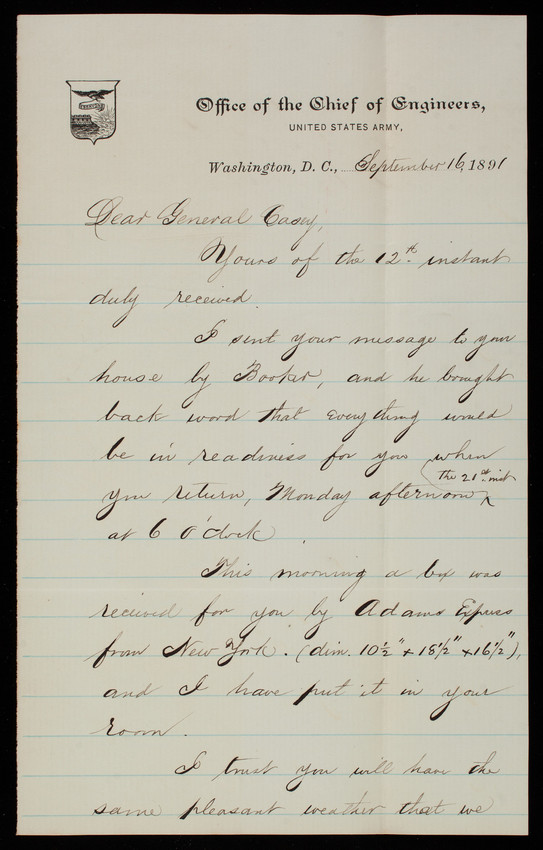 Office of the Chief of Engineers,
UNITED STATES ARMY,
Washington, D. C., September 16, 1891
Dear General Casey,
Yours of the 12th. instant
duly received.
I sent your message to your
house by Booker, and he brought
back word that everything would
be in readiness for you when
the 21st. inst
you return, Monday afternoon ^
at 6 o'clock.
This morning a box was
received for you by Adams Express
from New York. (dim. 10½" x 18½" x 16½"),
and I have put it in your
room.
I trust you will have the
same pleasant weather that we